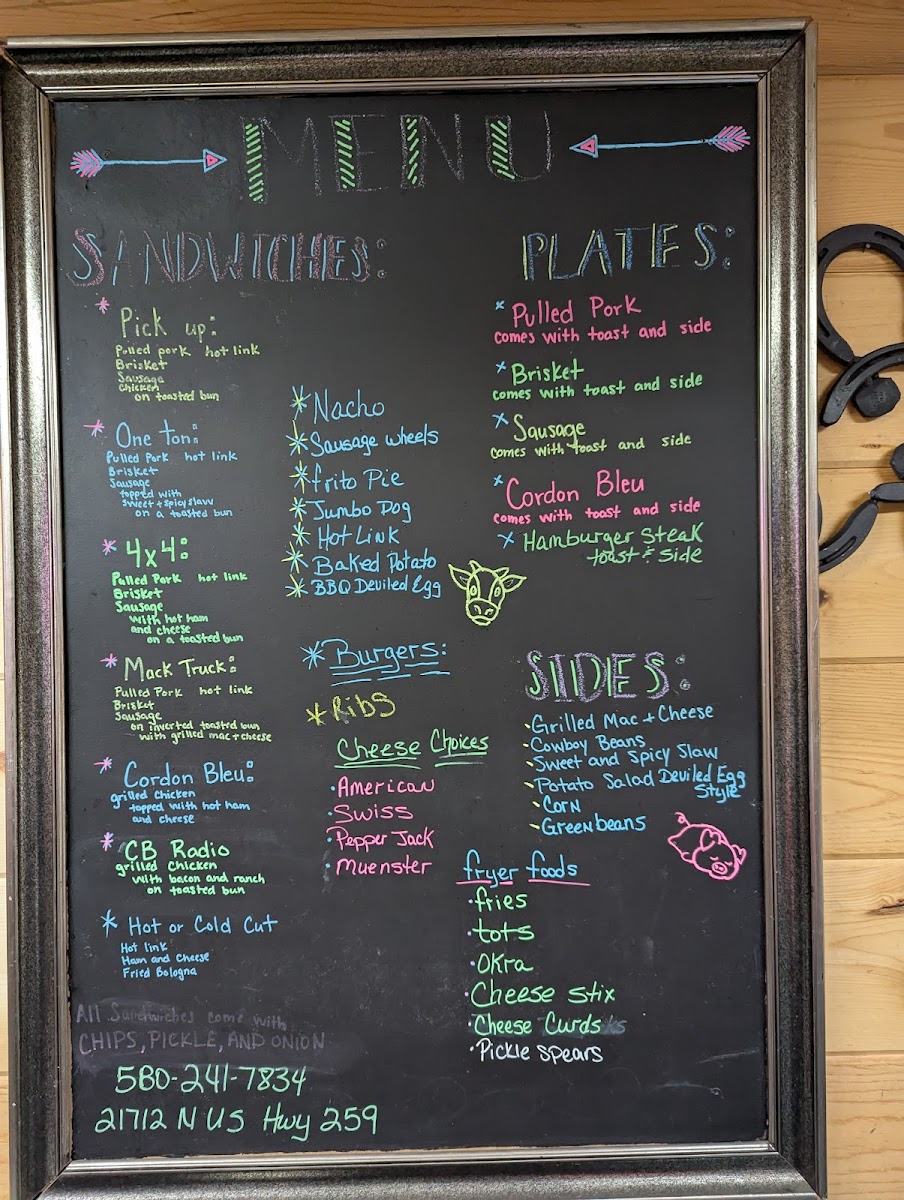 MENU
SANDWICHES:
* Pick up:
Pulled pork hot link
Brisket
Sausage
Chicken
on toasted bun
* One ton:
Pulled Pork hot link
Brisket
Sausage
topped with
sweet + spicy slaw
on a toasted bun
* 4x4:
Pulled Pork hot link
Brisket
Sausage
with hot ham
and cheese
on a toasted bun
* Mack Truck:
Pulled Pork hot link
Brisket
Sausage
on inverted toasted bun
with grilled mac + cheese
* Cordon Bleu:
grilled chicken
topped with hot ham
and cheese
* CB Radio
grilled chicken
with bacon and ranch
on toasted bun
* Hot or Cold Cut
Hot link
Ham and Cheese
Fried Bologna
All Sandwiches come with
CHIPS, PICKLE, AND ONION
580-241-7834
21712 N US Hwy 259
* Nacho
* Sausage wheels
* frito Pie
* Jumbo Dog
* Hot Link
* Baked Potato
* BBQ Deviled Egg
* Burgers:
* Ribs
Cheese Choices
· American
· Swiss
· Pepper Jack
· Muenster
PLATES:
* Pulled Pork
comes with toast and side
* Brisket
comes with toast and side
* Sausage
comes with toast and side
* Cordon Bleu
comes with toast and side
* Hamburger Steak
toast & Side
SIDES:
- Grilled Mac + Cheese
- Cowboy Beans
- Sweet and Spicy Slaw
- Potato Salad Deviled Egg
Style
- Corn
- Greenbeans
fryer foods
· fries
· tots
· Okra
· Cheese Stix
· Cheese Curds
· Pickle Spears